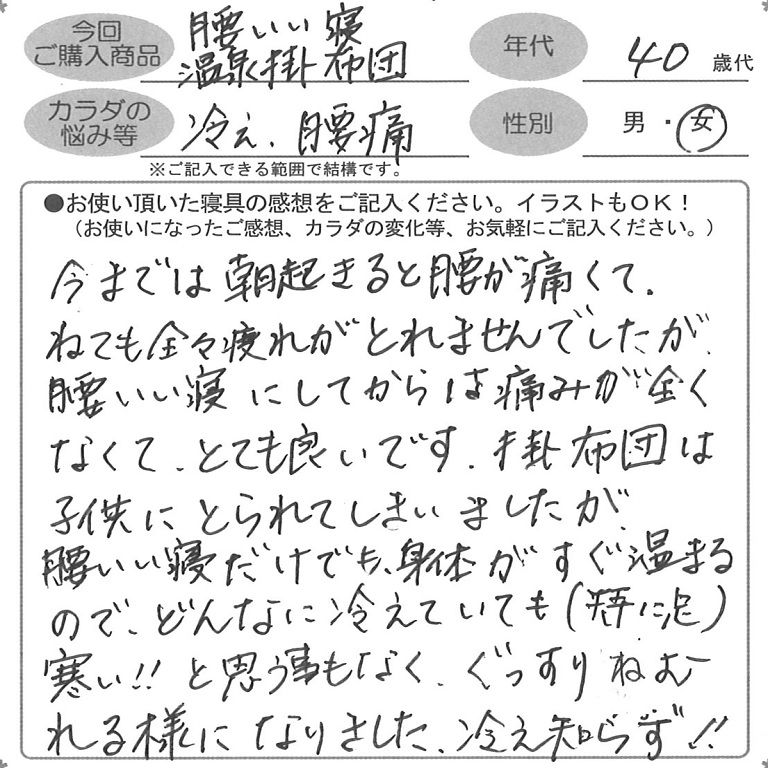 今回
ご購入商品
腰いい寝
温泉掛布団
年代
40 歳代
カラダの
悩み等
冷え、腰痛
性別
男・女
※ご記入できる範囲で結構です。
●お使い頂いた寝具の感想をご記入ください。イラストもOK！
（お使いになったご感想、カラダの変化等、お気軽にご記入ください。）
今までは朝起きると腰が痛くて、
ねても全々疲れがとれませんでしたが、
腰いい寝にしてからは痛みが全く
なくて、とても良いです。掛布団は
子供にとられてしまいましたが、
腰いい寝だけでも、身体がすぐ温まる
ので、どんなに冷えていても(特に足)
寒い!!と思う事もなく、ぐっすりねむ
れる様になりました、冷え知らず!!